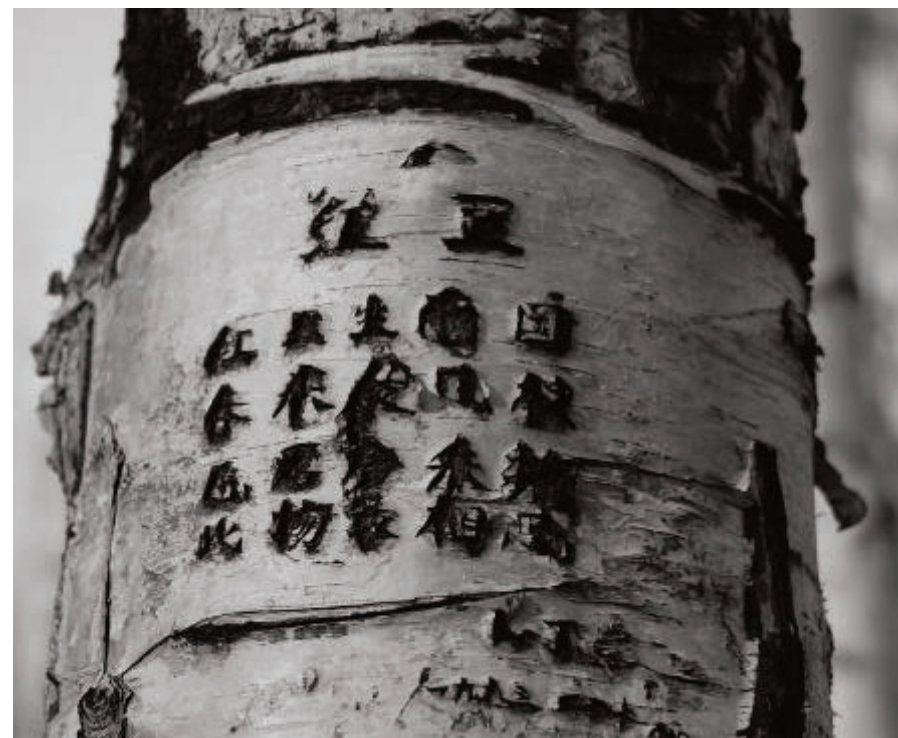 红豆
红豆生南国
春来发几枝
愿君多采撷
此物最相思
一九九三